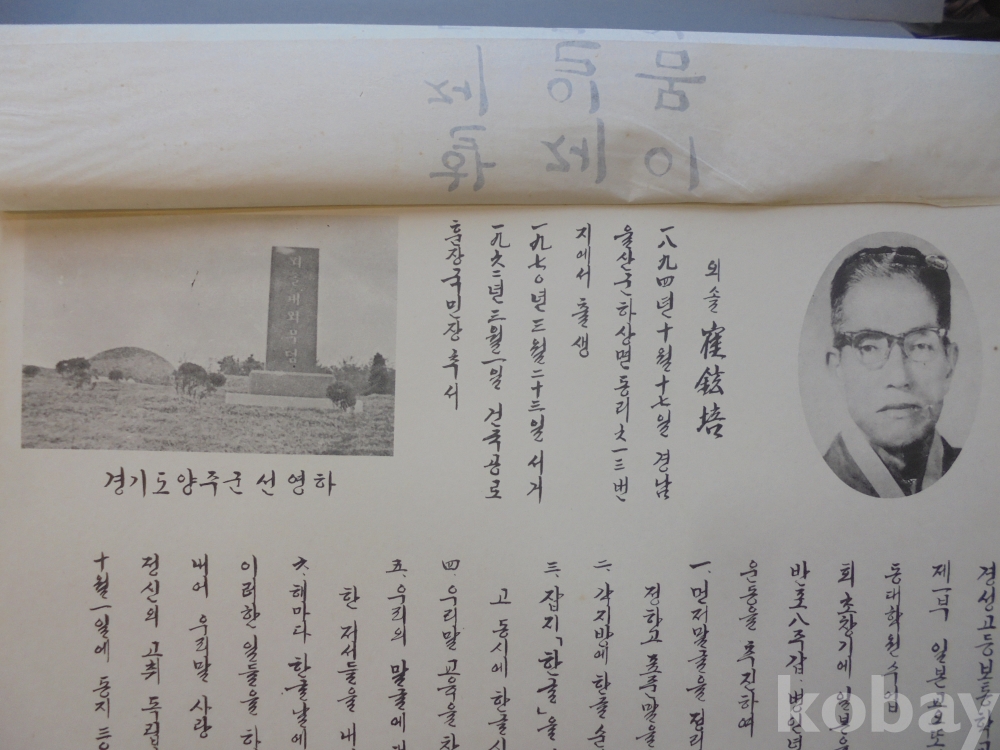 외솔 崔鉉培
一八九四년 十월 十七일 경남
울산군하상면동리六一三번
지에서 출생
一九七○년三월二十三일 서거
一九六二년 三월一일 건국공로
훈장국민장 추서
경기도양주군 선영하
경성고등보통학
제一부 일본
동대학원수업
회 초창기에
반포八주갑 병인년
운동을 추진하여
一. 먼저말글을 정리
정하고 표준말을
二. 각지방에한글
三. 잡지「한글」을
고 동시에한글
四. 우리말 교육을
五. 우리의 말글에
한 저서들을 내
六. 해마다 한글날에
이러한 일들을 하
내어 우리말 사랑
정신의 고취 독립
十월一일에 동지 三
kobay